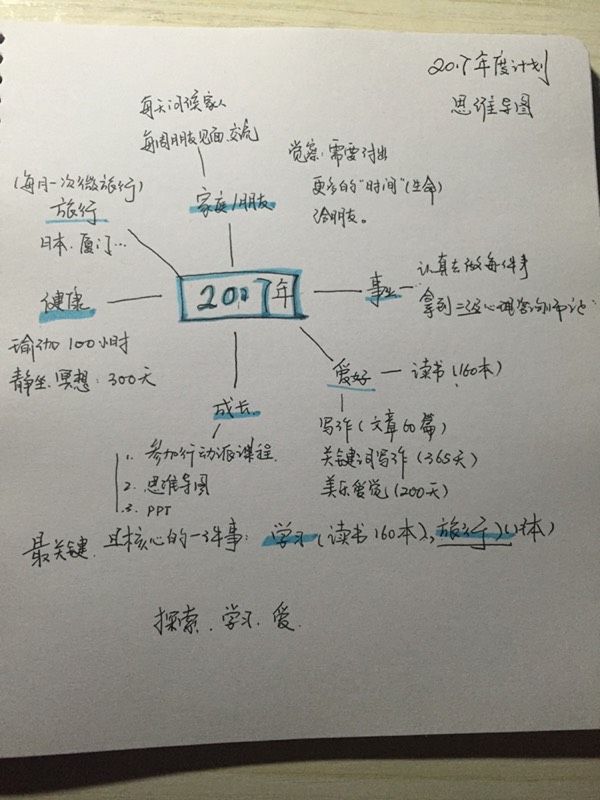 2017年度计划
思维导图
每天问候家人
每周朋友见面交流
家庭/朋友
觉察:需要付出
更多的"时间"(生命)
给朋友。
(每月一次微旅行)
旅行
日本.厦门…
健康
瑜伽100小时
静坐.冥想:300天
2017年
事业
认真去做每件事
拿到三级心理咨询师证
爱好
读书(160本)
写作(文章60篇)
关键词写作(365天)
(200天)
成长
1. 参加行动派课程.
2. 思维导图
3. PPT
最关键.且核心的一件事:学习(读书160本),旅行
探索.学习.爱.